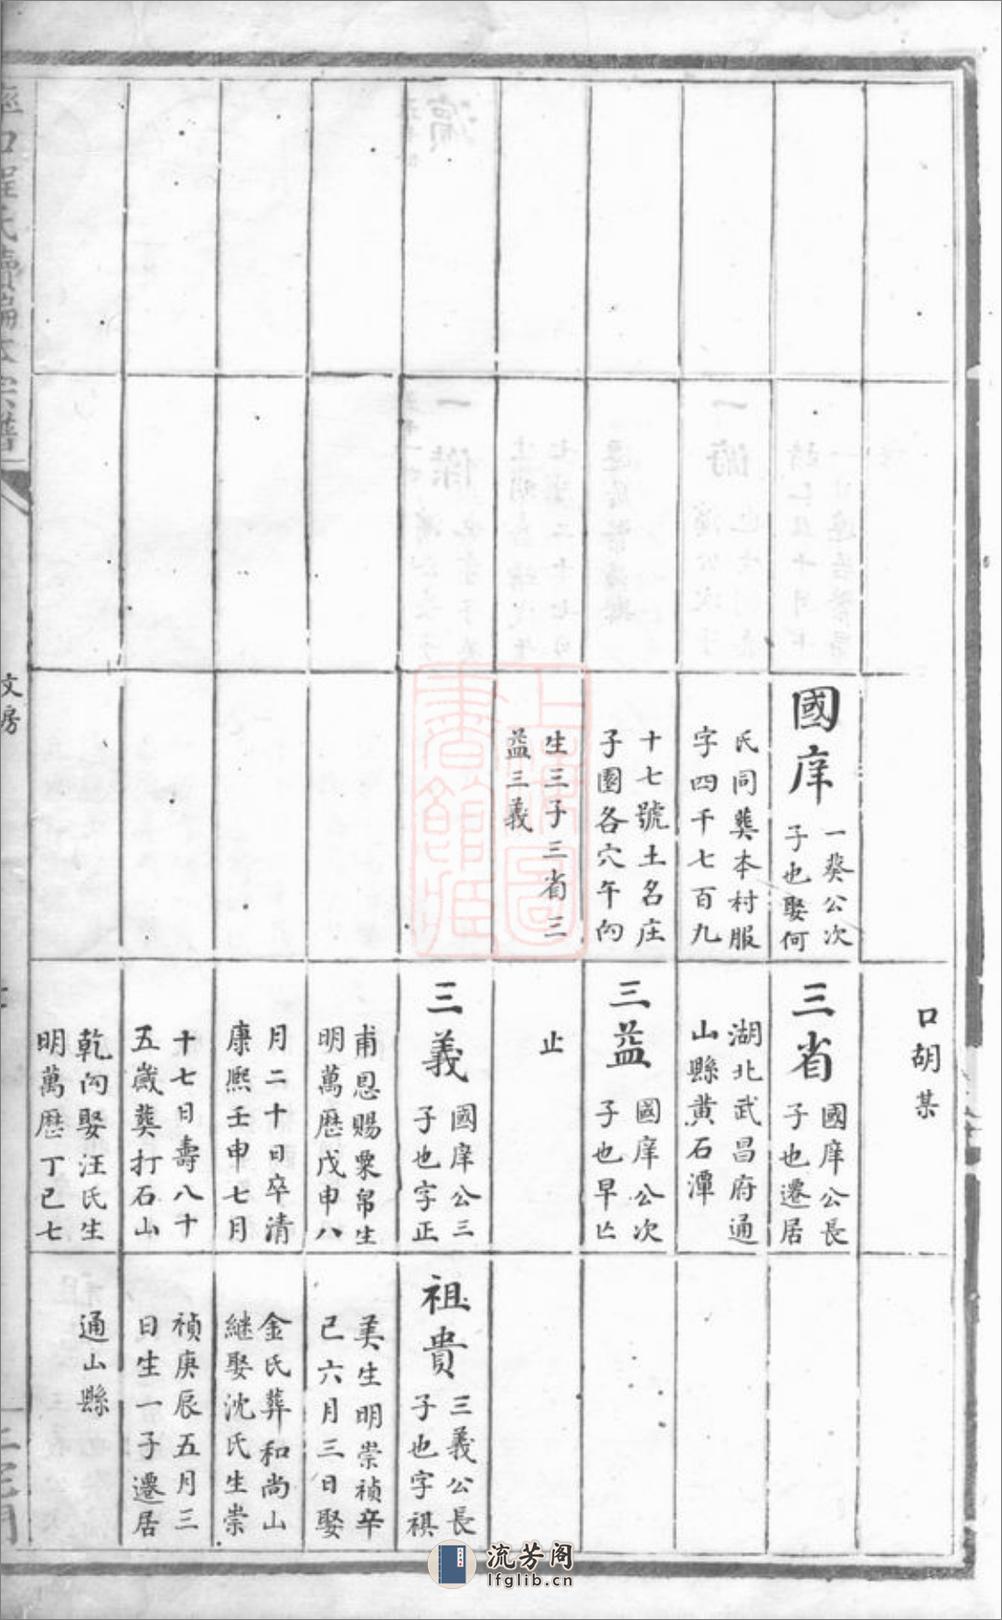 國庠
一葵公次
子也娶何
氏同葬本村服
字四千七百九
十七號土名庄
子園各穴午向
生三子三省三
益三義
口胡某
三省
國庠公長
子也遷居
湖北武昌府通
山縣黄石潭
三益
國庠公次
子也早亡
止
三義
國庠公三
子也字正
甫恩賜粟帛生
明萬歷戊申八
月二十日卒清
康熙壬申七月
十七日壽八十
五歲葬打石山
乾向娶汪氏生
明萬歷丁巳七
祖貴
三義公長
子也字祺
美生明崇禎辛
巳六月三日娶
金氏葬和尚山
継娶沈氏生崇
禎庚辰五月三
日生一子遷居
通山縣
口程氏續編本宗譜
文房
上海圖書館藏
流芳阁
lfglib.cn